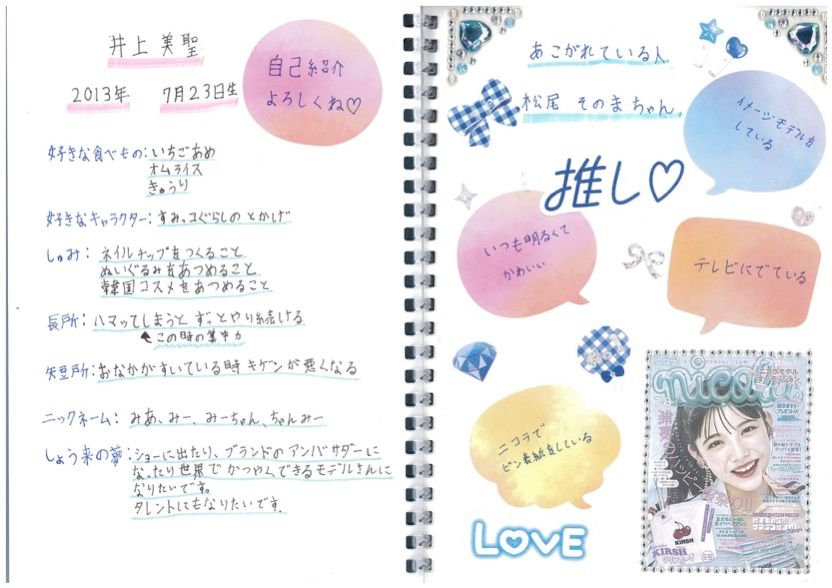 井上 美聖
2013年 7月23日生
自己紹介
よろしくね♡
好きな食べもの：いちごあめ
オムライス
きゅうり
好きなキャラクター：すみッコぐらしの とかげ
しゅみ：ネイルチップをつくること
ぬいぐるみをあつめること
韓国コスメをあつめること
長所：ハマってしまうと ずっとやり続ける
この時の集中力
短所：おなかがすいている時 キゲンが悪くなる
ニックネーム：みあ、みー、みーちゃん、ちゃんみー
しょう来の夢：ショーに出たり、ブランドの アンバサダーに
なったり世界で かつやくできるモデルさんに
なりたいです。
タレントにもなりたいです。
あこがれている人
松尾 そのまちゃん
イメージモデルを
している
推し♡
いつも明るくて
かわいい
テレビにでている
ニコラで
ピン表紙をしている
LOVE
nicola
KIRSH
KIRSH